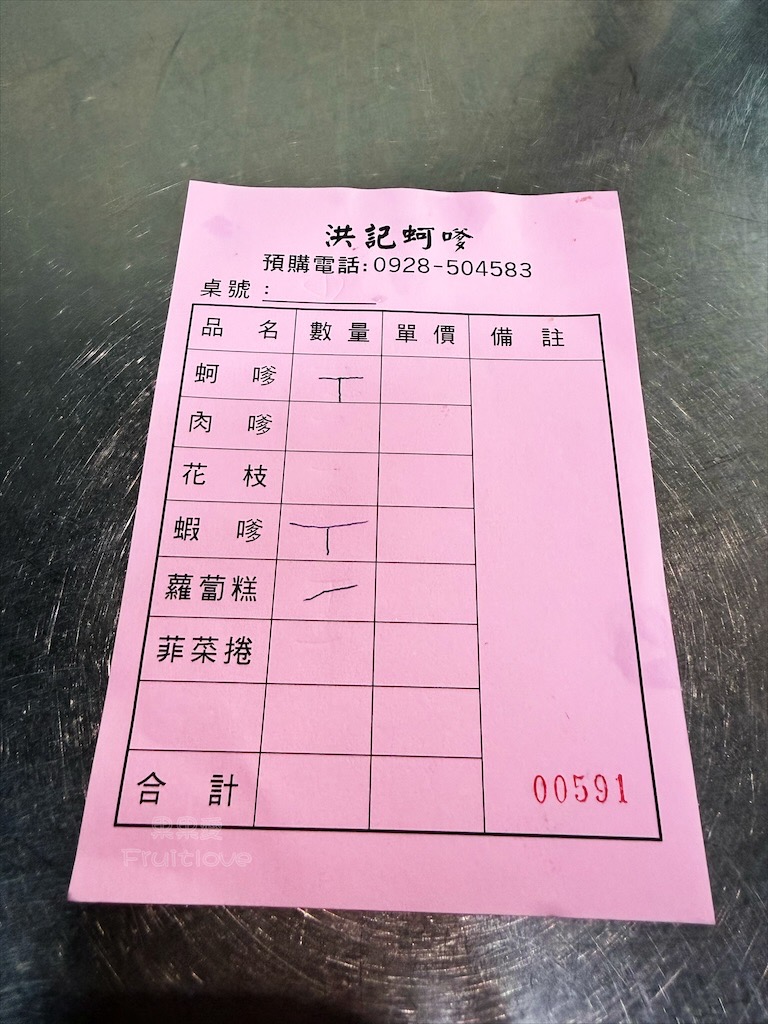 洪記蚵嗲
預購電話:0928-504583
桌號：
品名 數量 單價 備註
蚵嗲 丅
肉嗲
花枝
蝦嗲 丅
蘿蔔糕 一
菲菜捲
合計 00591
果果愛
Fruitlove